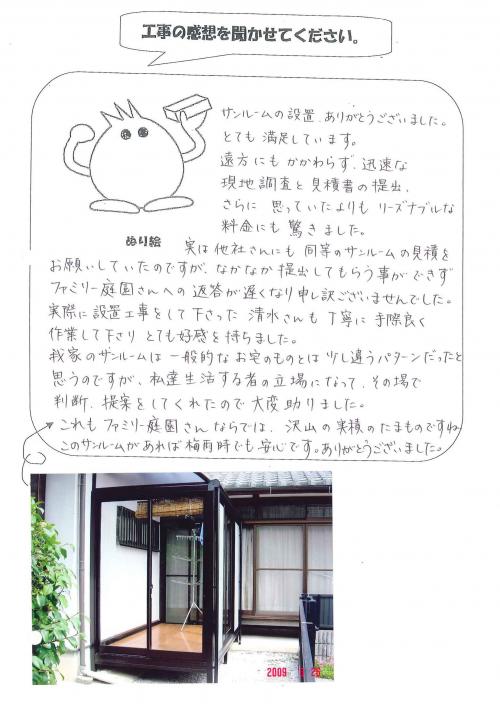 工事の感想を聞かせてください。
サンルームの設置、ありがとうございました。
とても満足しています。
遠方にもかかわらず、迅速な
現地調査と見積書の提出、
さらに思っていたよりもリーズナブルな
料金にも驚きました。
ぬり絵
実は他社さんにも同等のサンルームの見積を
お願いしていたのですが、なかなか提出してもらう事ができず
ファミリー庭園さんへの返答が遅くなり申し訳ございませんでした。
実際に設置工事をして下さった清水さんも丁寧に手際良く
作業して下さりとても好感を持ちました。
我家のサンルームは一般的なお宅のものとは少し違うパターンだったと
思うのですが、私達生活する者の立場になって、その場で
判断、提案をしてくれたので大変助りました。
これもファミリー庭園さんならでは、沢山の実積のたまものですね
このサンルームがあれば梅雨時でも安心です。ありがとうございました。
2009 26